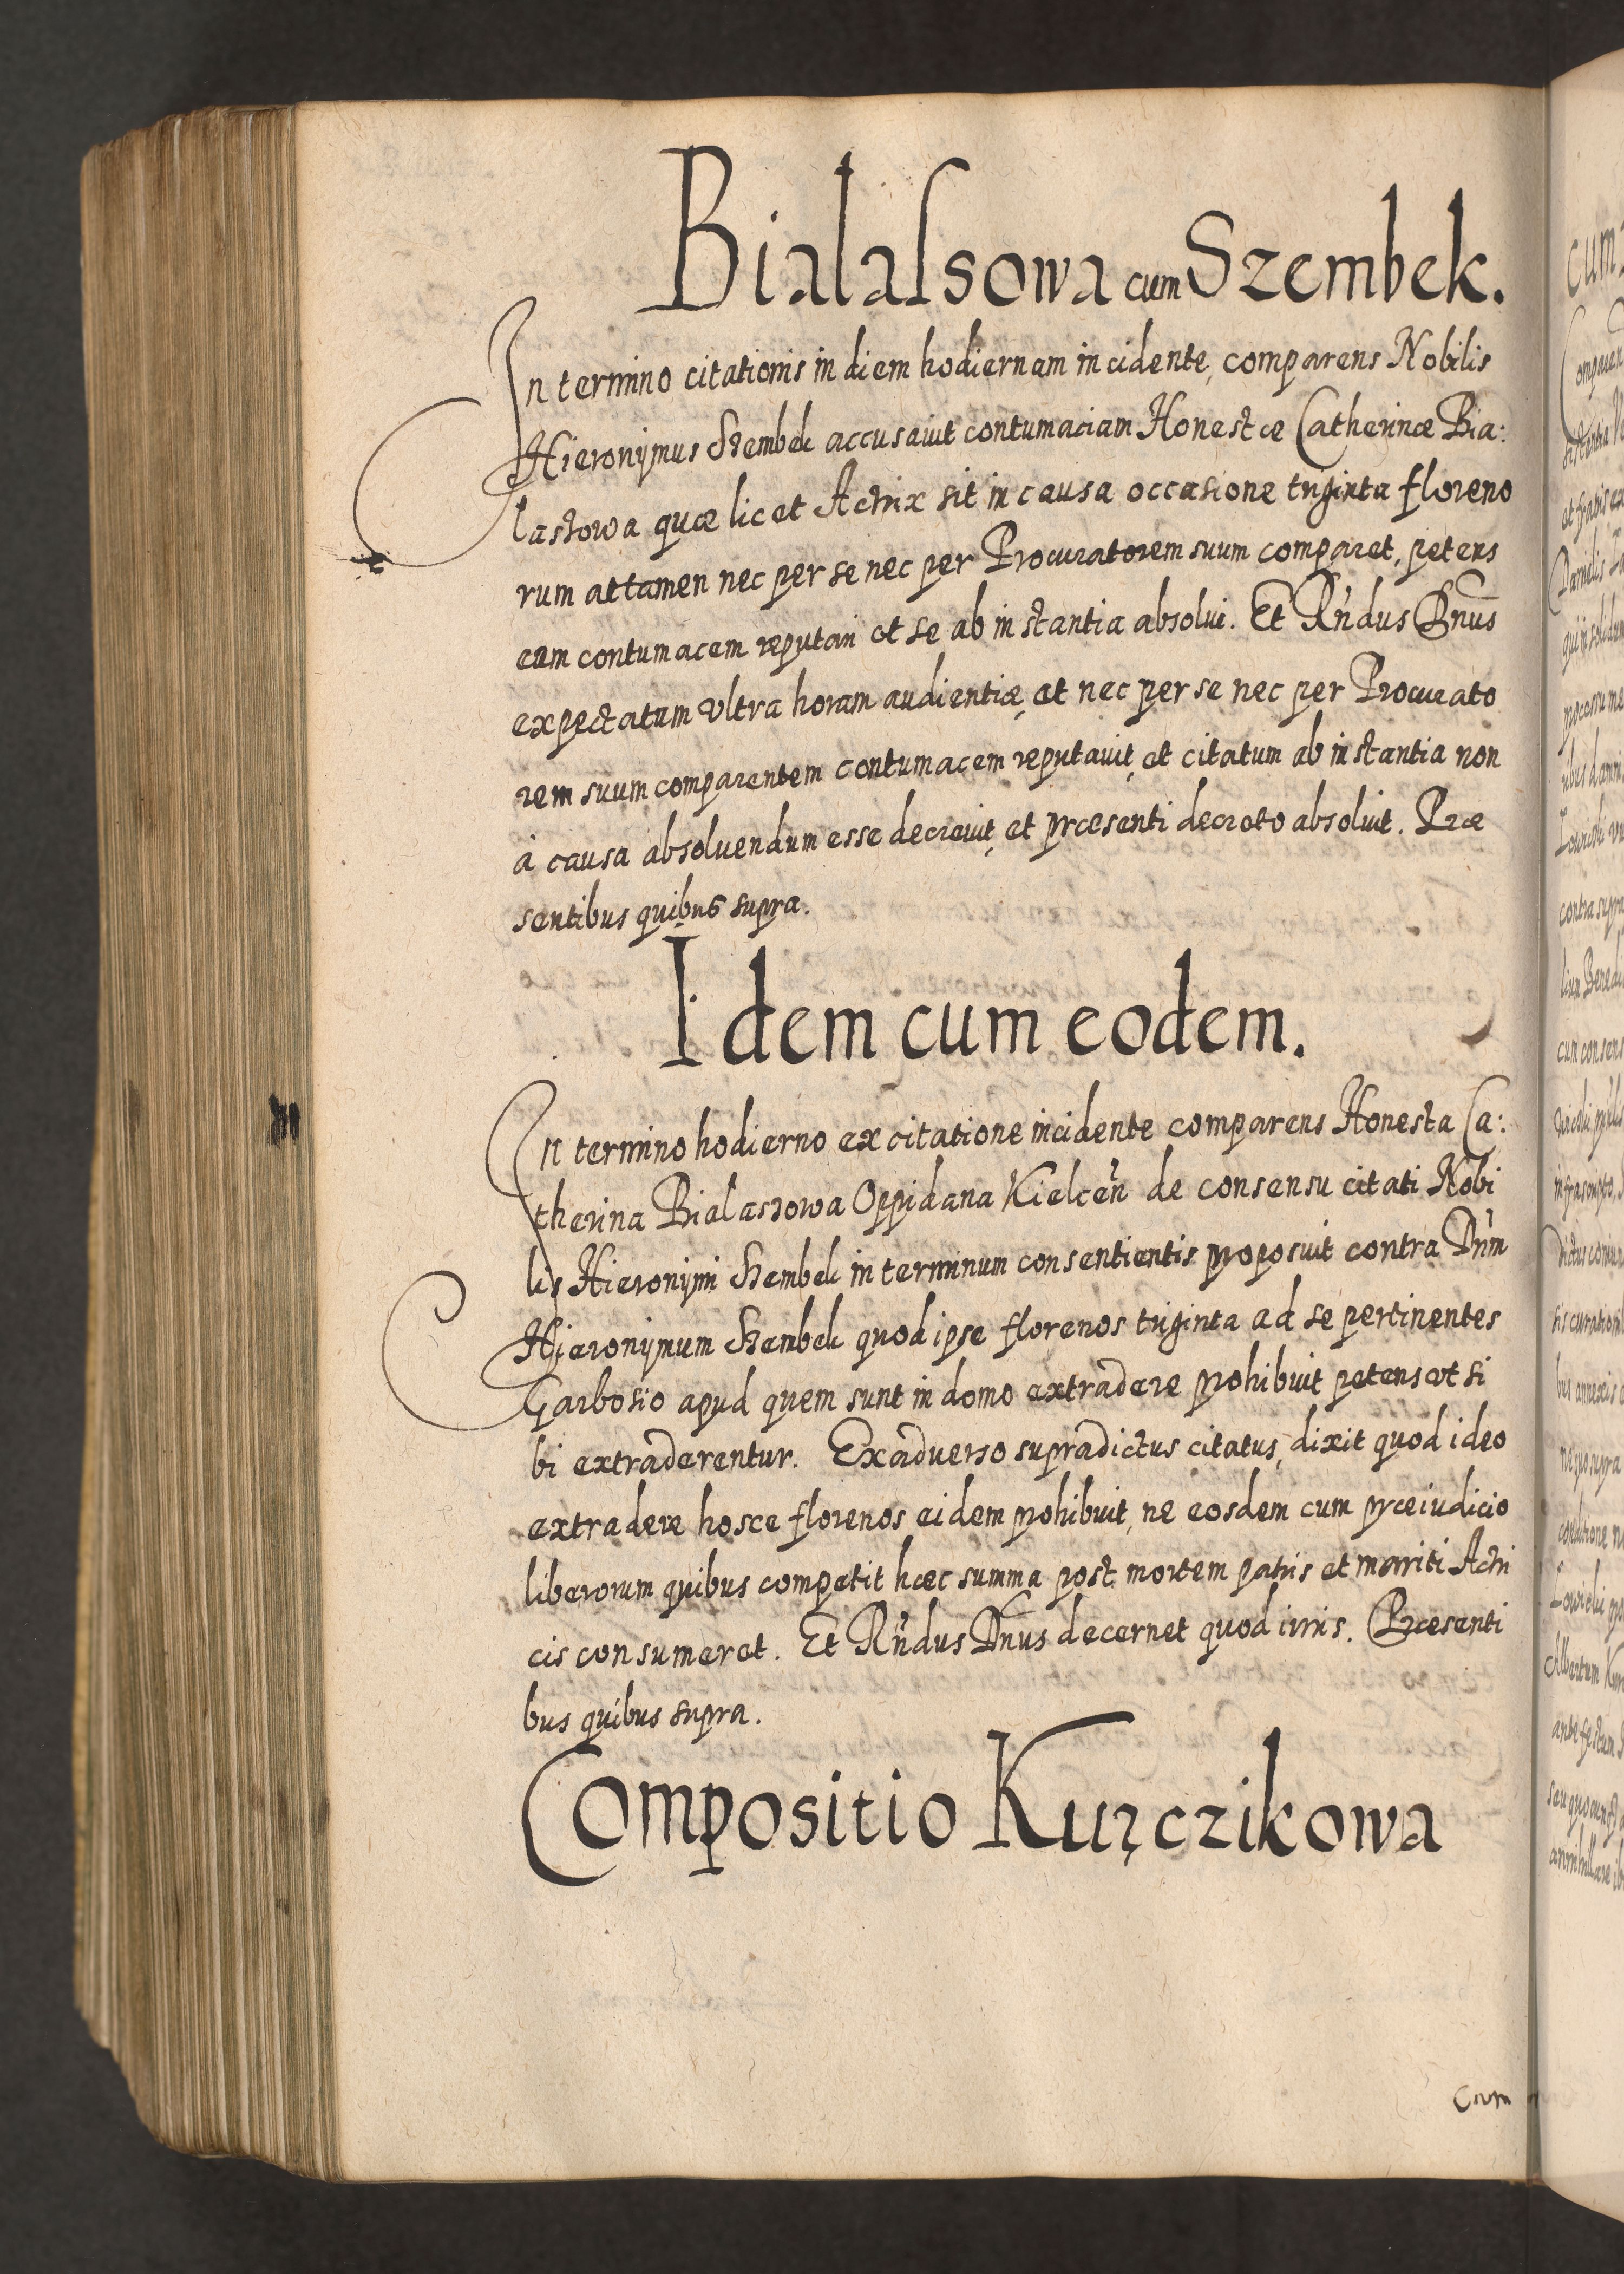 Bialassowa cum Szembek.
In termino citationis in diem hodiernam incidente, comparens Nobilis
Hieronymus Szembek accusauit contumaciam Honestæ Catherinæ Bia:
lassowa quæ licet Actrix sit in causa occasione triginta floreno
rum attamen nec per se nec per Procuratorem suum comparet, petens
eam contumacem reputari et se ab instantia absolui. Et Rndus Dnus
expectatam vltra horam audientiæ, et nec per se nec per Procurato
rem suum comparentem contumacem reputauit, et citatum ab instantia non
à causa absoluendum esse decreuit, et præsenti decreto absoluit. Præ
sentibus quibus supra.
Idem cum eodem.
In termino hodierno ex citatione incidente comparens Honesta Ca:
therina Bialassowa Oppidana Kielcen de consensu citati Nobi
lis Hieronymi Szembek in terminum consentientis proposuit contra Dnm
Hieronymum Szembek quod ipse florenos triginta ad se pertinentes
Garbosio apud quem sunt in domo extradere prohibuit petens vt si
bi extraderentur. Ex aduerso supradictus citatus, dixit quod ideo
extradere hosce florenos eidem prohibuit, ne eosdem cum præiudicio
liberorum quibus competit hæc summa post mortem patris et mariti Actri
cis consumeret. Et Rndus Dnus decernet quod iuris. Præsenti
bus quibus supra.
Compositio Kurczikowa
Cum